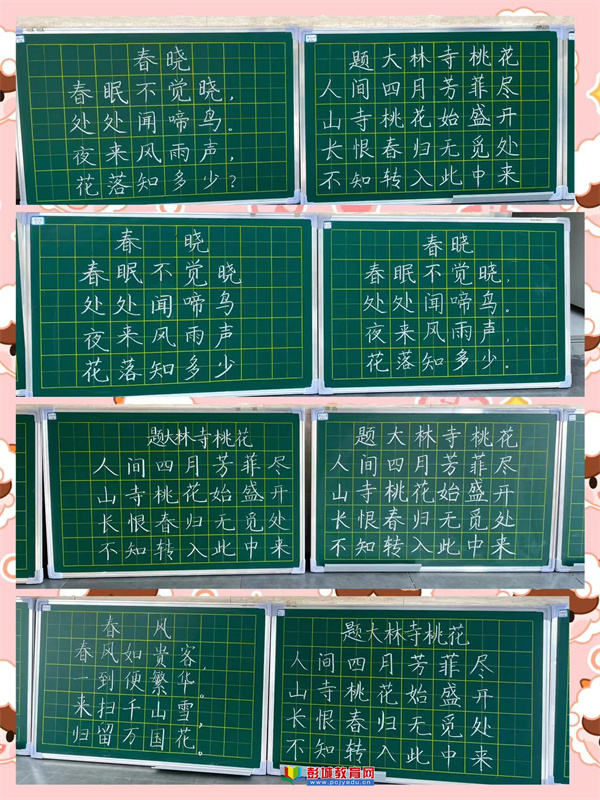 春晓
春眠不觉晓,
处处闻啼鸟。
夜来风雨声,
花落知多少?
题大林寺桃花
人间四月芳菲尽
山寺桃花始盛开
长恨春归无觅处
不知转入此中来
春 晓
春眠不觉晓
处处闻啼鸟
夜来风雨声
花落知多少
春晓
春眠不觉晓,
处处闻啼鸟。
夜来风雨声,
花落知多少。
题大林寺桃花
人间四月芳菲尽
山寺桃花始盛开
长恨春归无觅处
不知转入此中来
题大林寺桃花
人间四月芳菲尽
山寺桃花始盛开
长恨春归无觅处
不知转入此中来
春 风
春风如贵客,
一到便繁华。
来扫千山雪,
归留万国花。
题大林寺桃花
人间四月芳菲尽
山寺桃花始盛开
长恨春归无觅处
不知转入此中来
彭城教育网
www.pcjyedu.cn